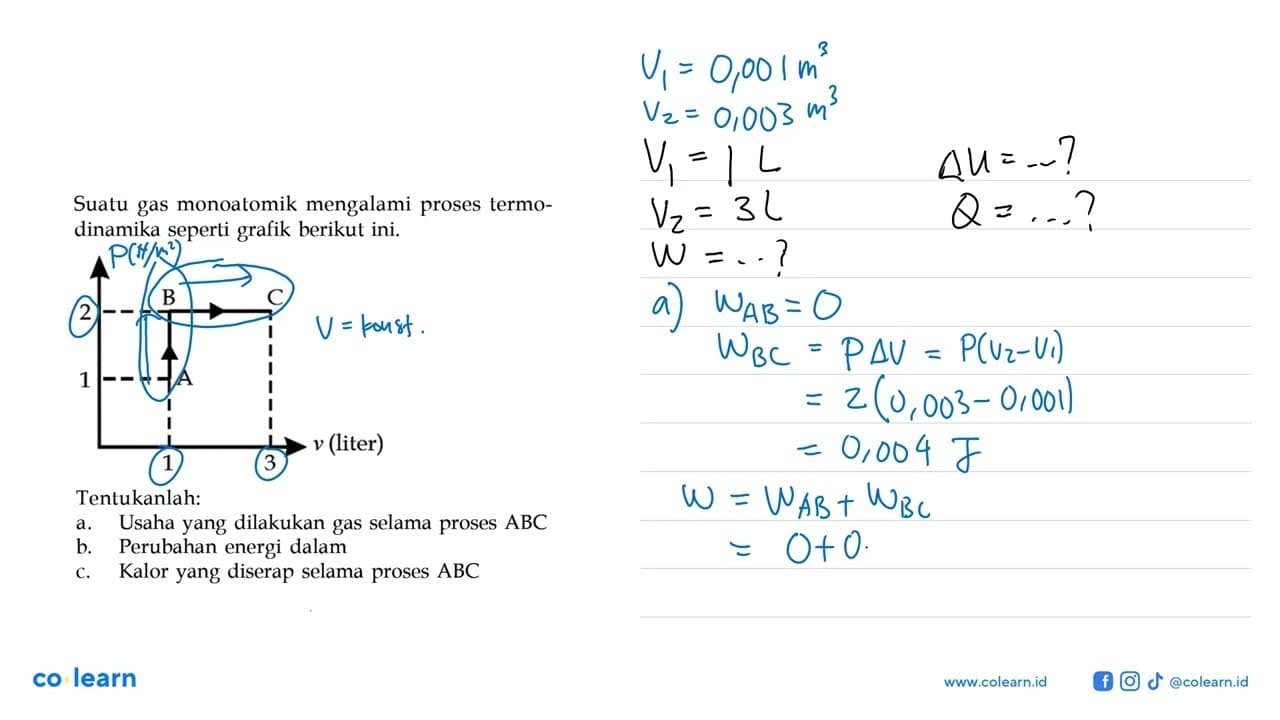 Suatu gas monoatomik mengalami proses termo-
dinamika seperti grafik berikut ini.
P(N/m²)
B C
2
V = konst.
1 A
v (liter)
1 3
Tentukanlah:
a. Usaha yang dilakukan gas selama proses ABC
b. Perubahan energi dalam
c. Kalor yang diserap selama proses ABC
V₁ = 0,001 m³
V₂ = 0,003 m³
V₁ = 1 L
V₂ = 3 L
W = ..?
ΔU = ...?
Q = ...?
a) W_AB = 0
W_BC = P ΔV = P(V₂-V₁)
= 2(0,003 - 0,001)
= 0,004 J
W = W_AB + W_BC
= 0 + 0.
co learn
www.colearn.id
@colearn.id